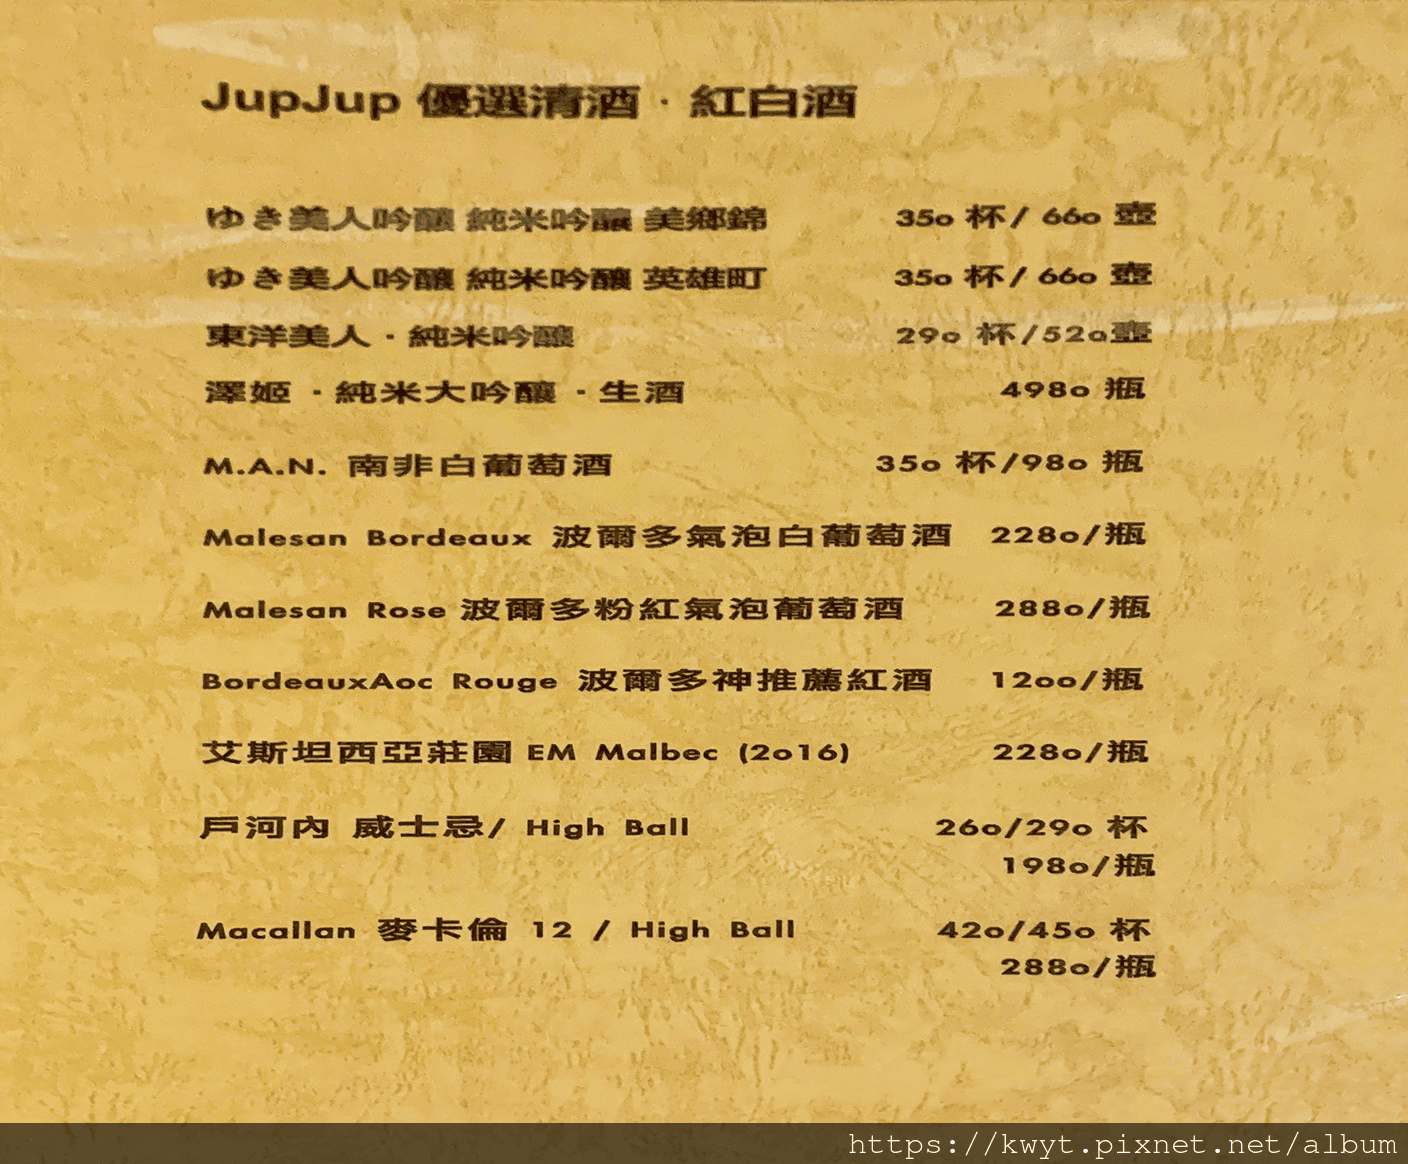 JupJup 優選清酒 · 紅白酒
ゆき美人吟釀 純米吟釀 美鄉錦 350 杯/ 660 壺
ゆき美人吟釀 純米吟釀 英雄町 350 杯/ 660 壺
東洋美人 · 純米吟釀 290 杯/520壺
澤姬 · 純米大吟釀 · 生酒 4980 瓶
M.A.N. 南非白葡萄酒 350 杯/980 瓶
Malesan Bordeaux 波爾多氣泡白葡萄酒 2280/瓶
Malesan Rose 波爾多粉紅氣泡葡萄酒 2880/瓶
BordeauxAoc Rouge 波爾多神推薦紅酒 1200/瓶
艾斯坦西亞莊園 EM Malbec (2016) 2280/瓶
戶河內 威士忌/ High Ball 260/290 杯
1980/瓶
Macallan 麥卡倫 12 / High Ball 420/450 杯
2880/瓶
https://kwyt.pixnet.net/album